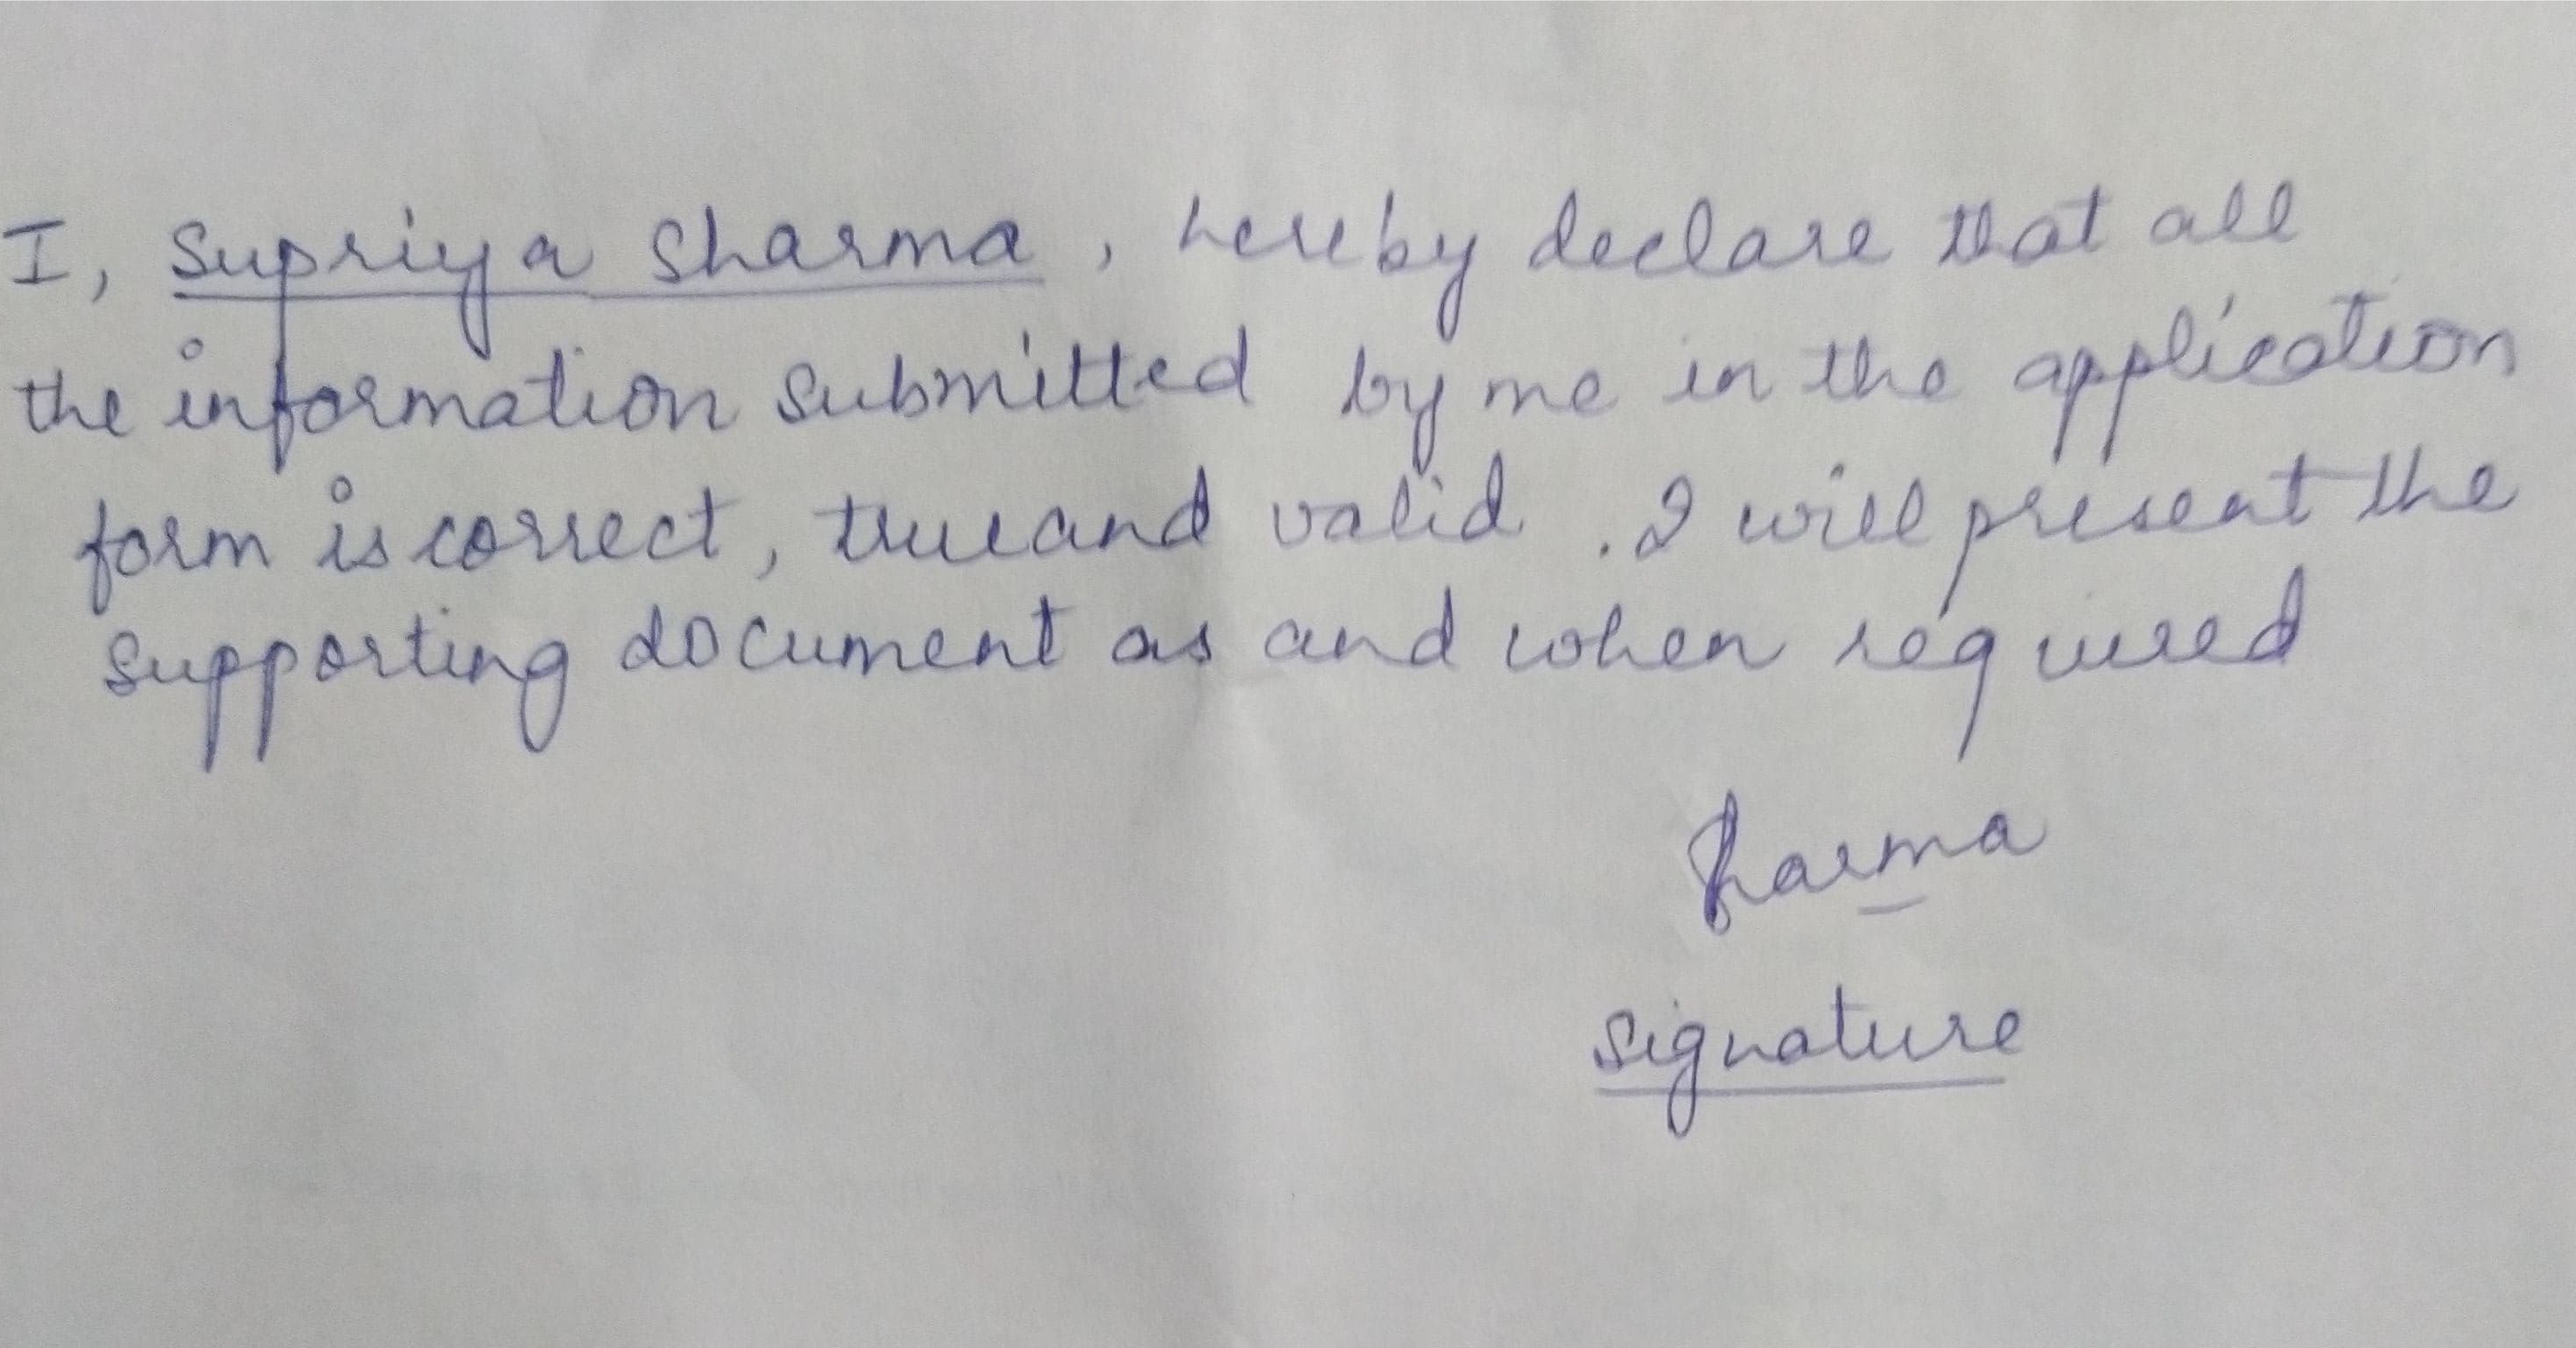 I, Supriya Sharma, hereby declare that all
the information submitted by me in the application
form is correct, true and valid. I will present the
supporting document as and when required
Sharma
Signature